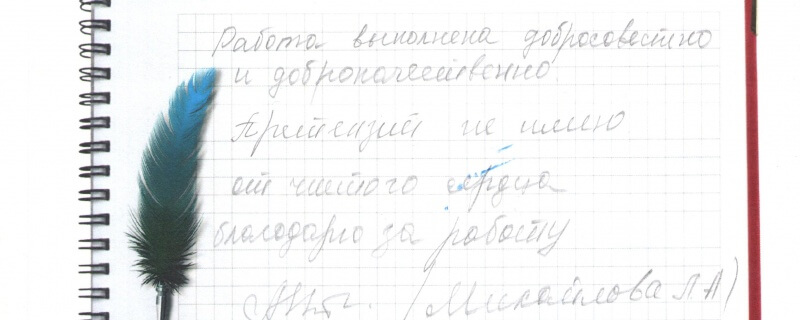 Работа выполнена добросовестно
и доброкачественно.
Притензий не имею
от чистого сердца
благодарю за работу
(Михайлова Л.А)